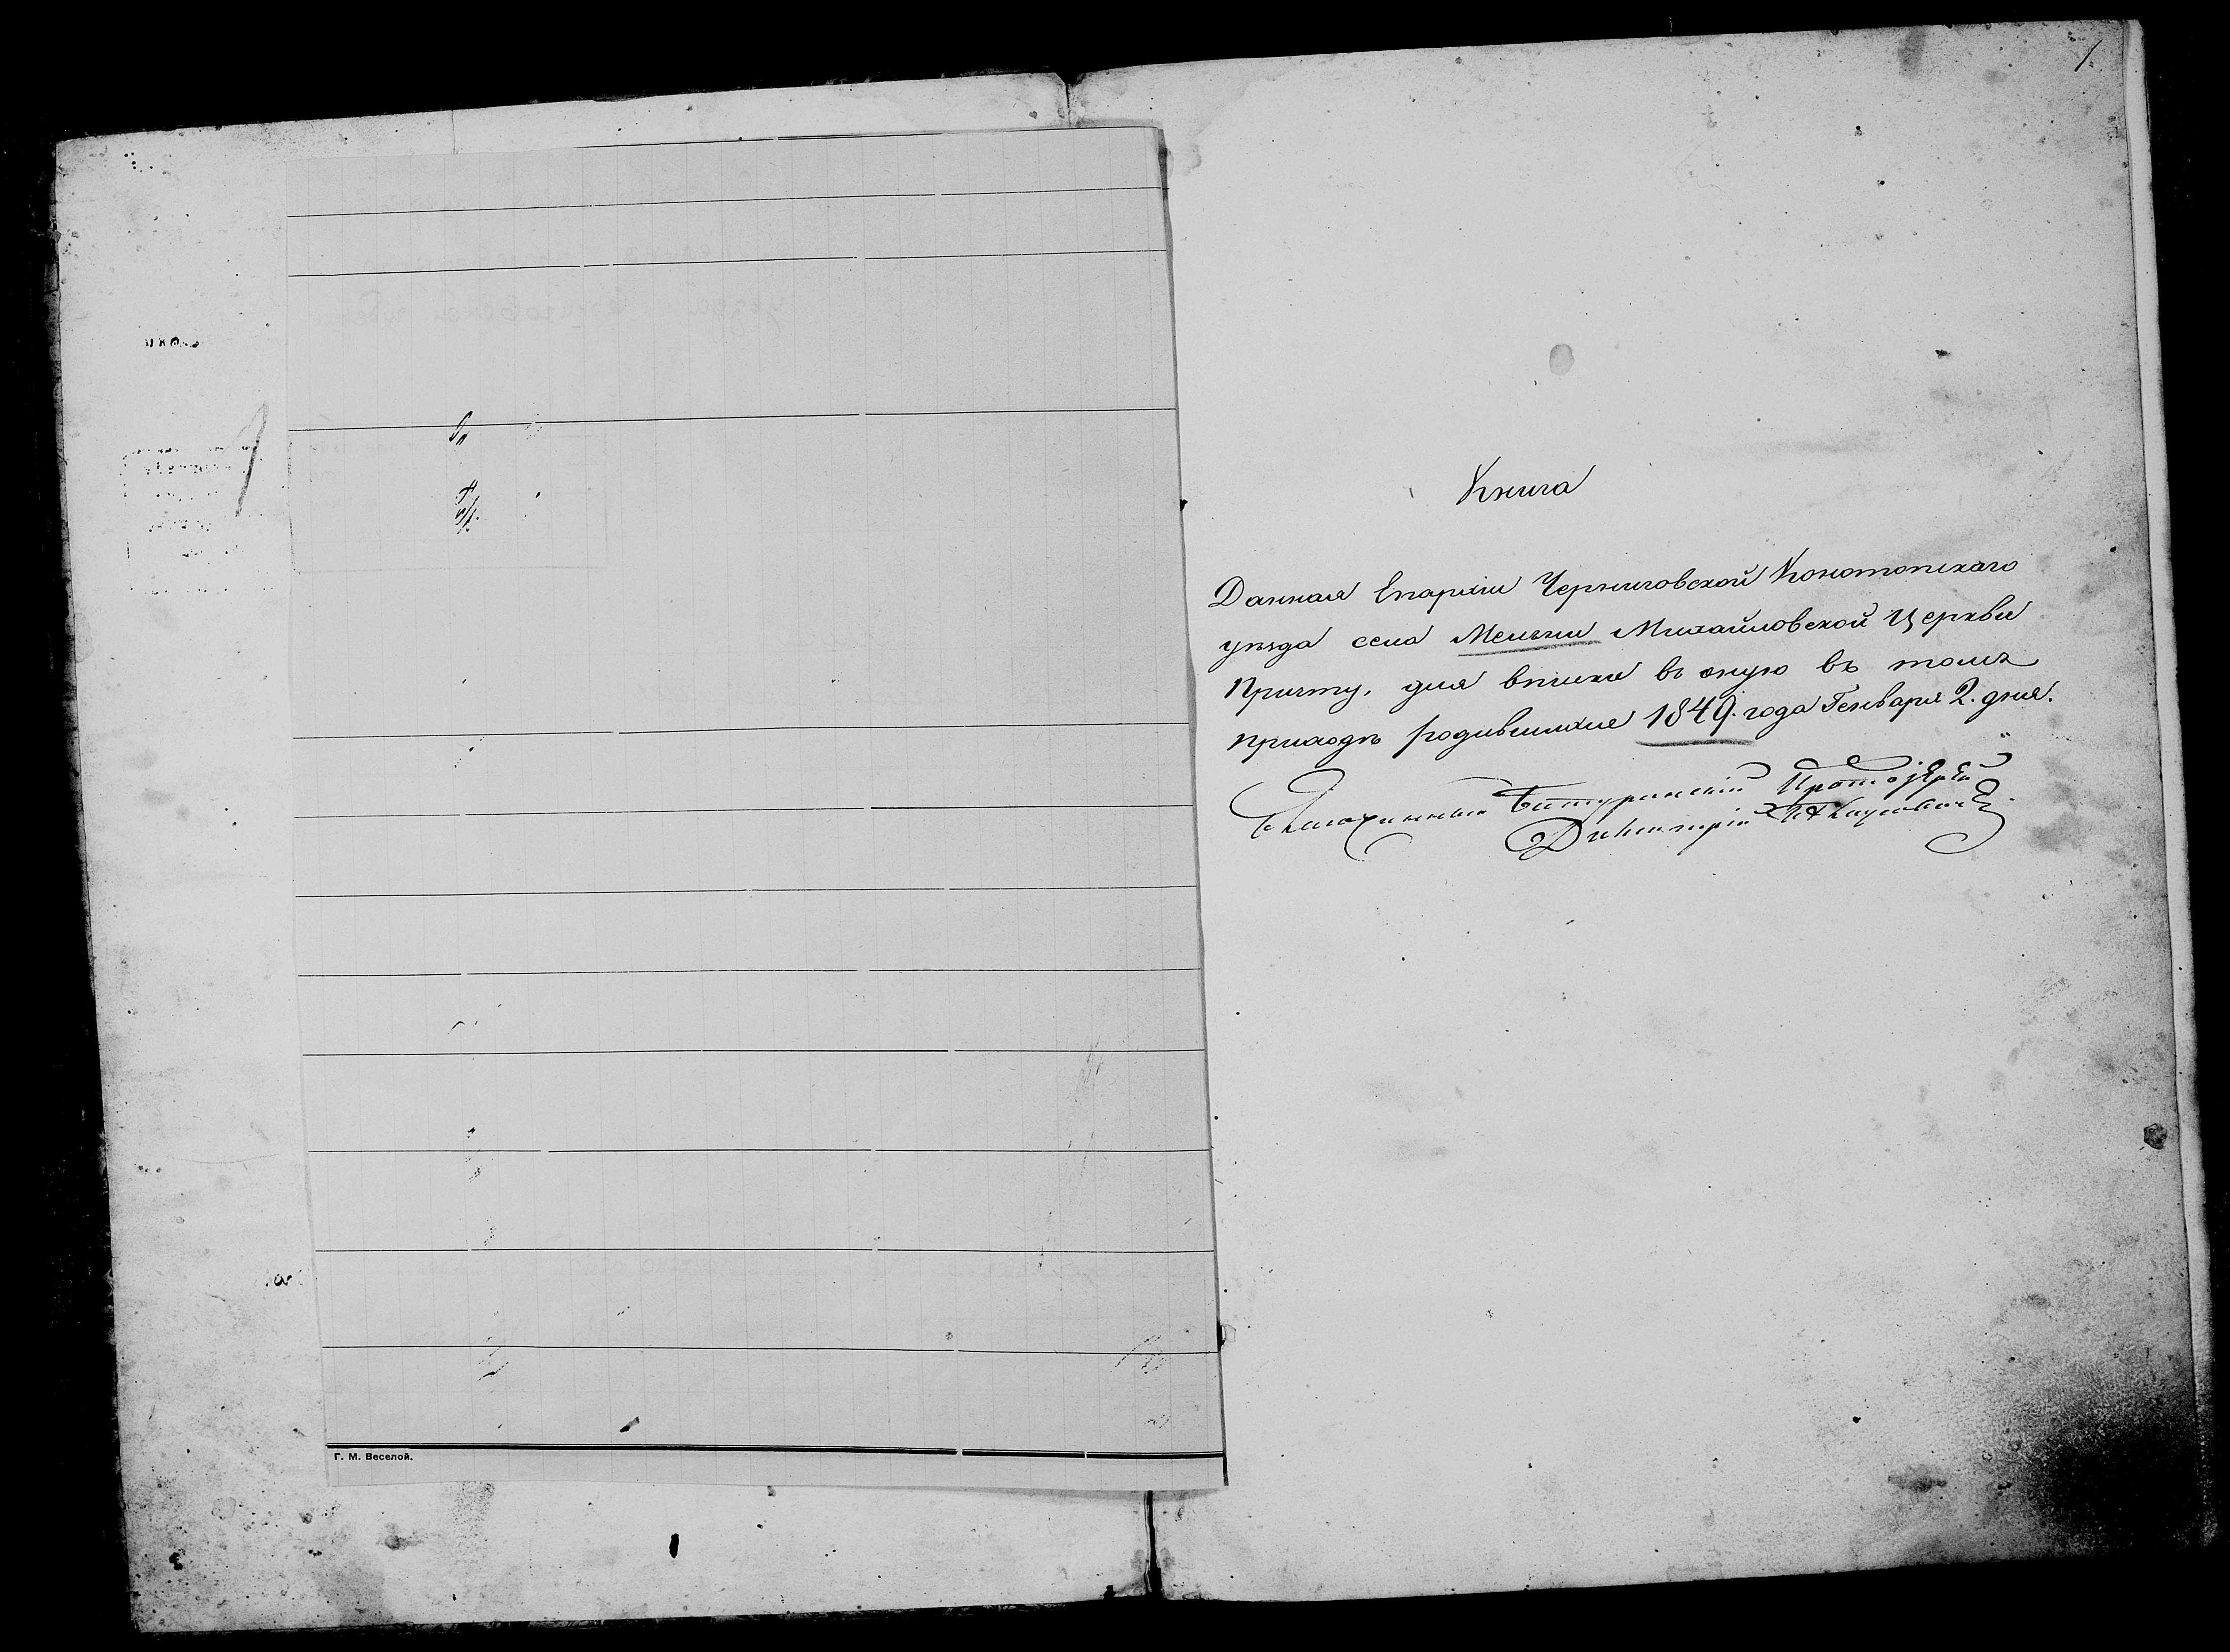 1
Книга
Данная Епархіи Черниговской Конотопскаго
уѣзда села Мельни Михайловской Церкви
Причту, для вписки въ оную въ томъ
приходѣ родившихся 1849. года Генваря 2. дня.
Благочинный Батуринскій Протоіерей
Димитрій
Г. М. Веселой.